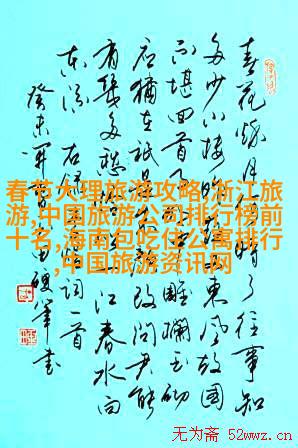 春花秋月何时了往事知
多少小楼昨夜又東风故国
不堪回首月明中雕欄玉砌
应犹在只是朱颜改问君能
有几多愁恰似一江春水向
东流
词一首
癸未
书
春节大理旅游攻略,浙江旅
游,中国旅游公司排行榜前
十名,海南包吃住公寓排行
,中国旅游资讯网
无为斋 52wwz.cn